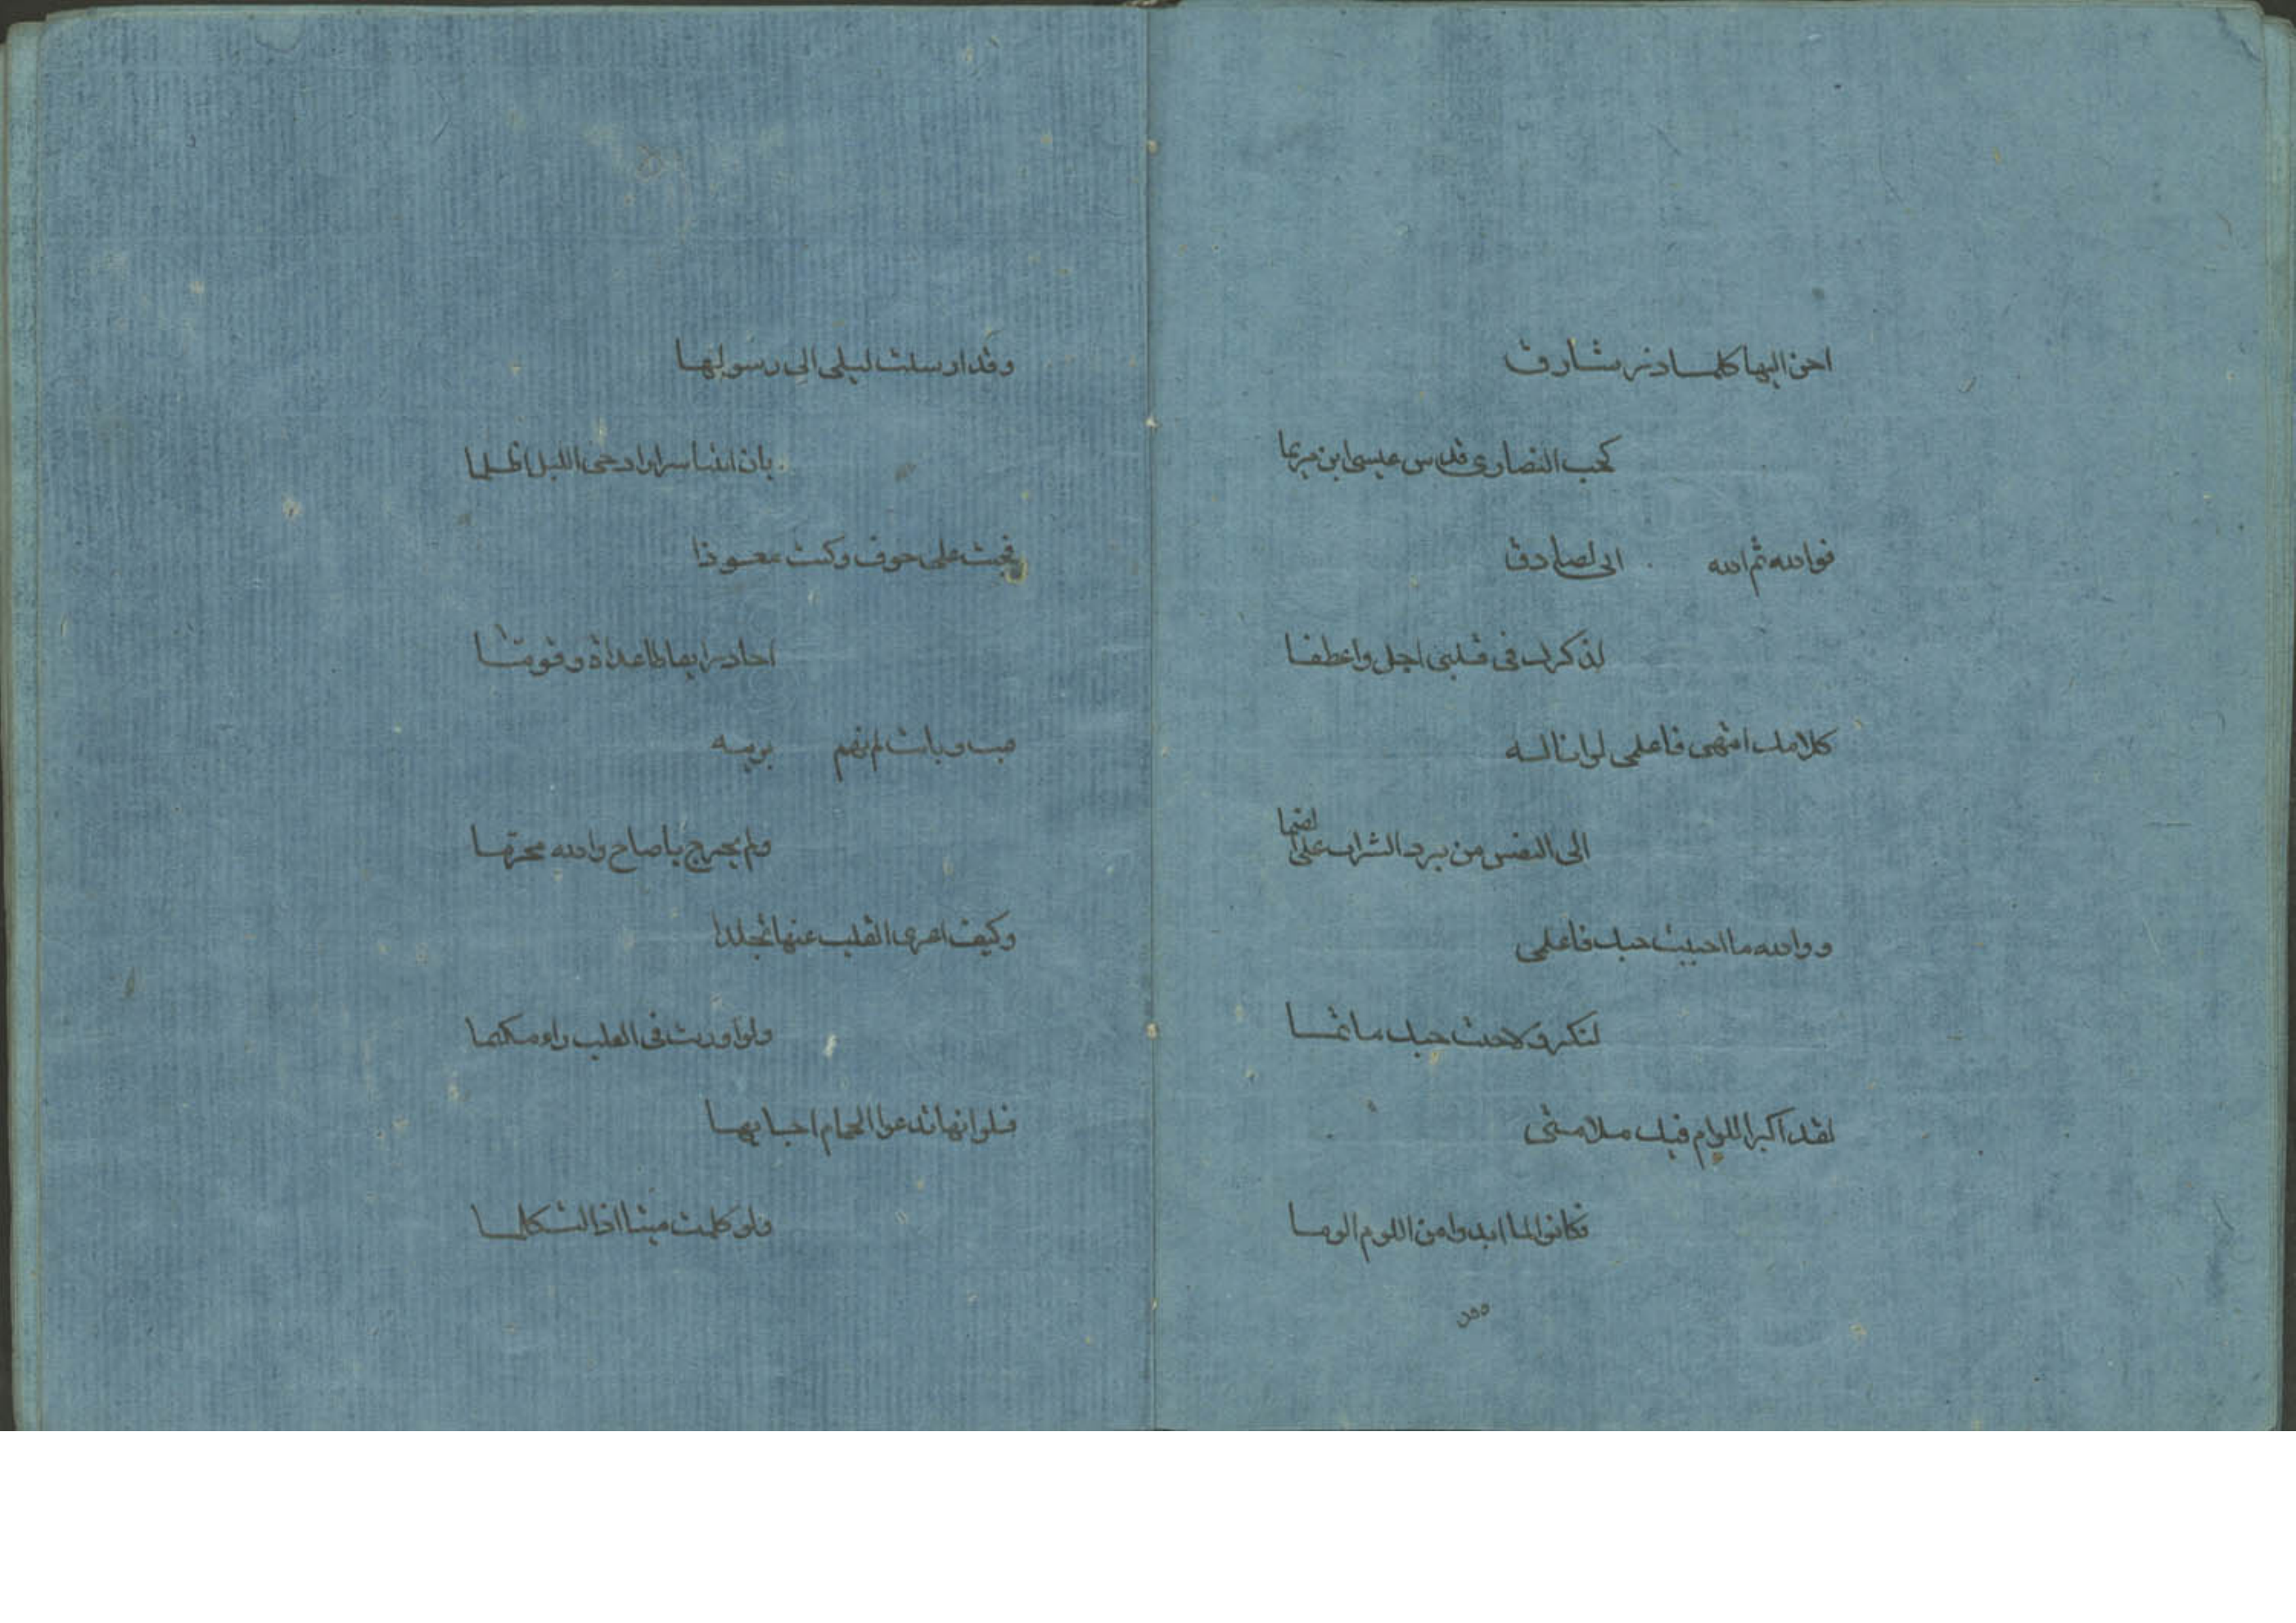 احن اليها كلما ذر شارق
كحب النصارى قدس عيسى ابن مريما
فوالله ثم الله انى لصادق
لذكرك فى قلبى اجل واعظما
كلامك اشهى فاعلمى لو اناله
الى النفس من برد الشراب على الضما
ووالله ما احببت حبك فاعلمى
لنكر ولا حبك
لقد اكبر اللوام فيك ملامتى
فكانوا لما ابدوا من اللوم الوما
وقد
وقد ارسلت ليلى الى رسولها
بان ائتنا سرا اذا الليل اظلما
فجئت على خوف وكنت معوذا
احاذر ايقاظا عداة ونوما
فبت وباتت لم نهم بريبه
ولم نجترح يا صاح والله محرما
وكيف اعزى القلب عنها تجلدا
ولو اورثت فى القلب داء مكتما
فلو انها تدعوا الحمام اجابها
ولو كلمت ميتا اذا لتكلما